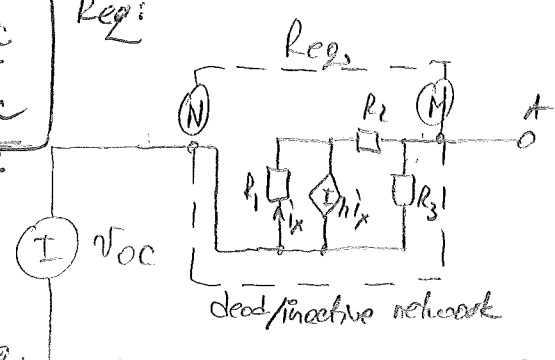 Req:
Req,
N
M
R2
A
R1
ix
I
hix
R3
I
VOC
dead/inactive network